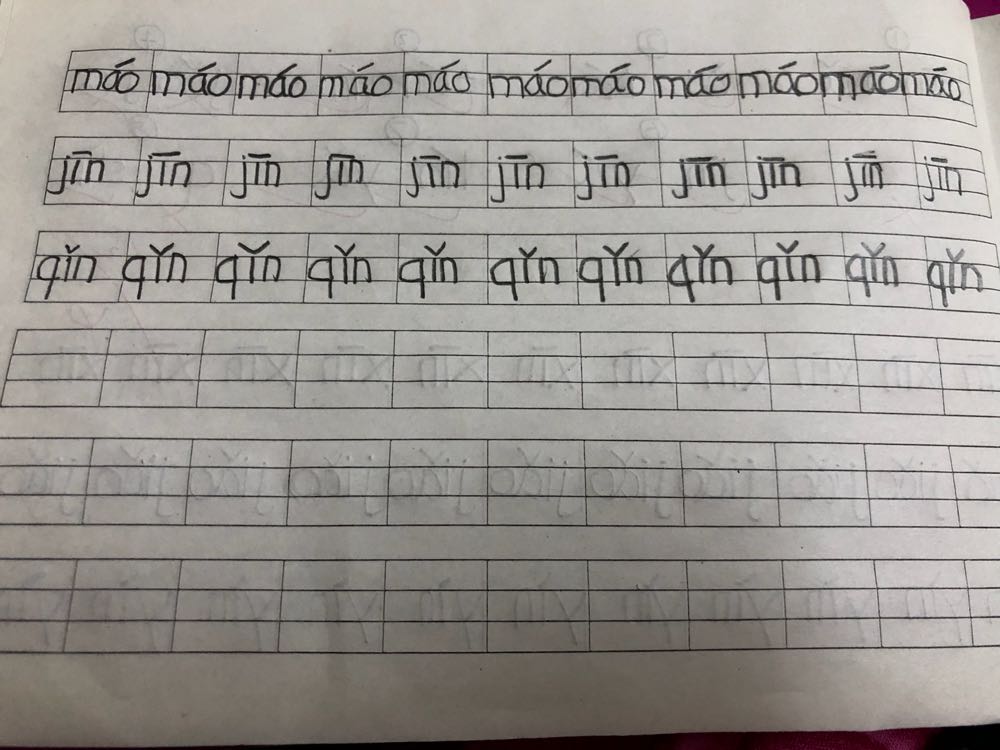 máo máo máo máo máo máo máo máo máo máo máo
jīn jīn jīn jīn jīn jīn jīn jīn jīn jīn jīn
qǐn qǐn qǐn qǐn qǐn qǐn qǐn qǐn qǐn qǐn qǐn